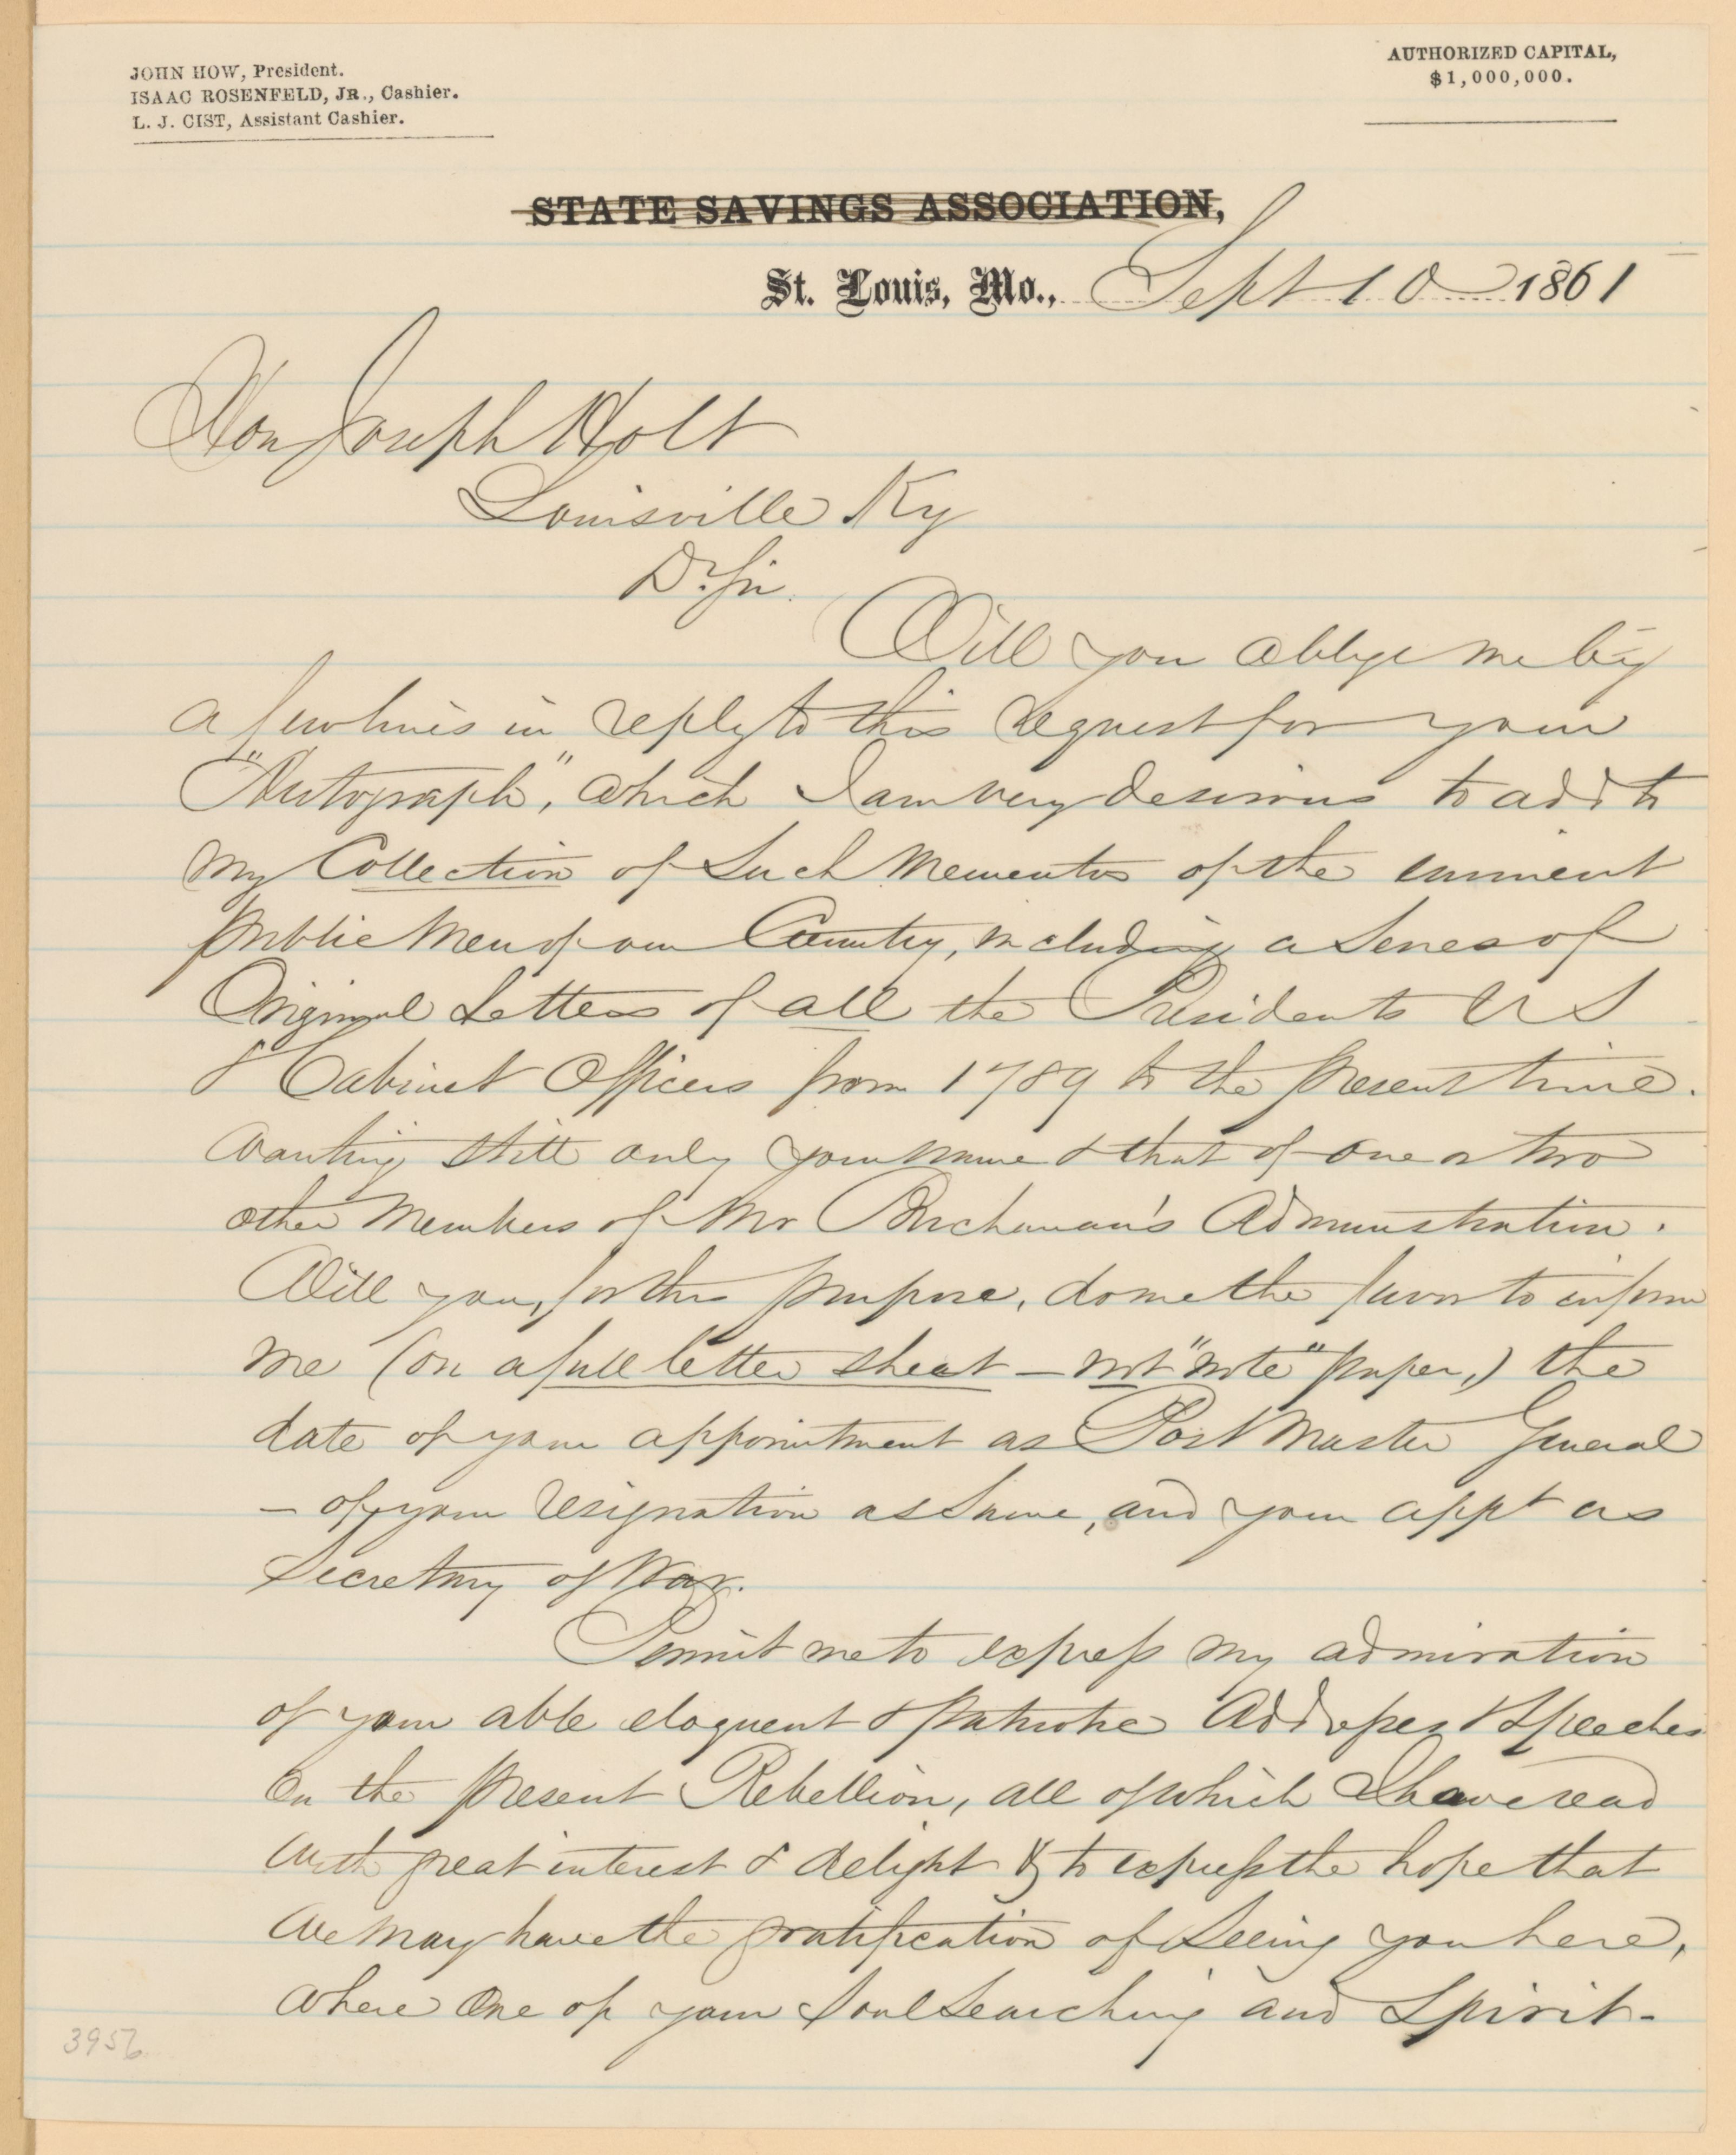 JOHN HOW, President.
ISAAC ROSENFELD, JR., Cashier.
L. J. CIST, Assistant Cashier.
AUTHORIZED CAPITAL,
$1,000,000.
STATE SAVINGS ASSOCIATION,
St. Louis, Mo., Sept 10 1861
Hon Joseph Holt
Louisville Ky
Dr. Sir.
Will you oblige me by
a few lines in reply to this request for your
"Autograph", which I am very desirous to add to
my Collection of Such Mementos of the eminent
public Men of our Country, including a Series of
Original Letters of all the Presidents U S
& Cabinet Officers from 1789 to the present time.
wanting still only your name & that of one or two
other Members of Mr Buchanan's Administration.
Will you, for this purpose, do me the favor to inform
me (on a full letter sheet — not "note" paper,) the
date of your appointment as Post Master General
— of your resignation as Same, and your appt as
Secretary of War.
Permit me to express my admiration
of your able eloquent & patriotic Addresses & Speeches
on the present Rebellion, all of which I have read
with great interest & delight & to express the hope that
we may have the gratification of Seeing you here,
where One of your Soul Searching and Spirit-
3956